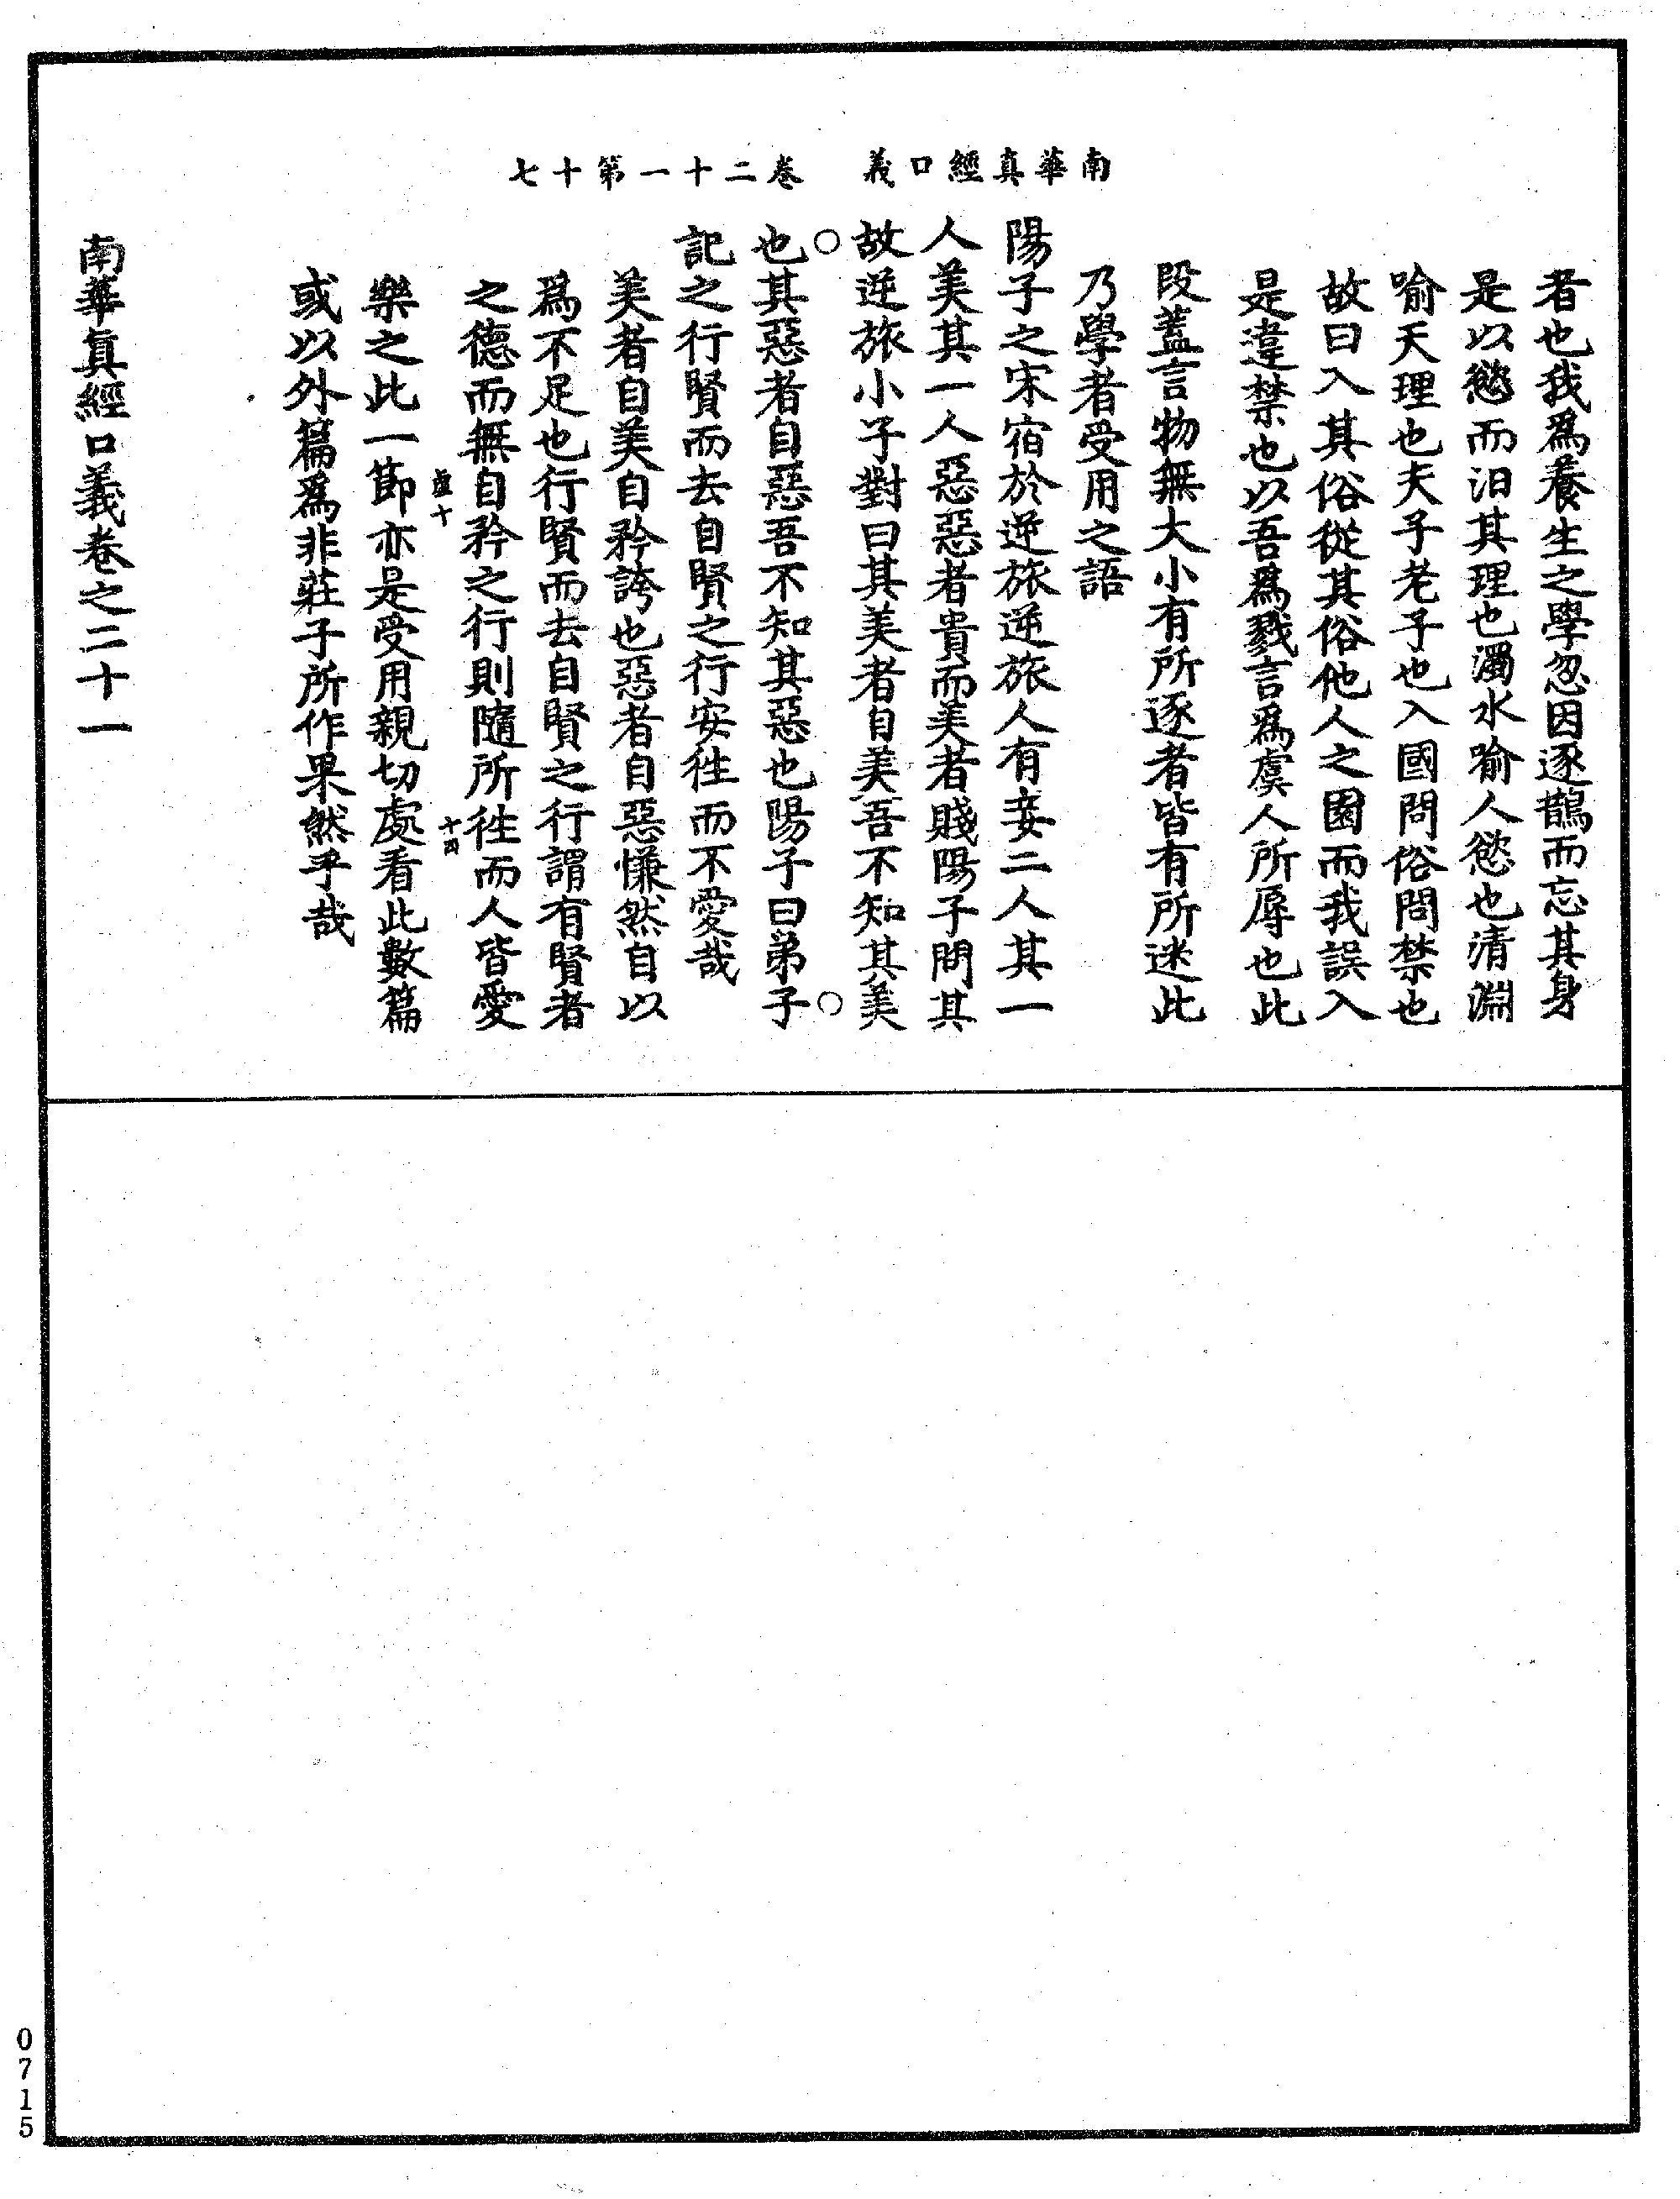 南華真經口義　卷二十一第十七
者也我為養生之學忽因逐鵲而忘其身
是以慾而汨其理也濁水喻人慾也清淵
喻天理也夫子老子也入國問俗問禁也
故曰入其俗從其俗他人之園而我誤入
是違禁也以吾為戮言為虞人所辱也此
段蓋言物無大小有所逐者皆有所迷此
乃學者受用之語
陽子之宋宿於逆旅逆旅人有妾二人其一
人美其一人惡惡者貴而美者賤陽子問其
故逆旅小子對曰其美者自美吾不知其美
也○其惡者自惡吾不知其惡也陽子曰弟子○
記之行賢而去自賢之行安往而不愛哉
美者自美自矜誇也惡者自惡慊然自以
為不足也行賢而去自賢之行謂有賢者
之德而無自矜之行則隨所往而人皆愛
虛十
十四
樂之此一節亦是受用親切處看此數篇
或以外篇為非莊子所作果然乎哉
南華真經口義卷之二十一
0715